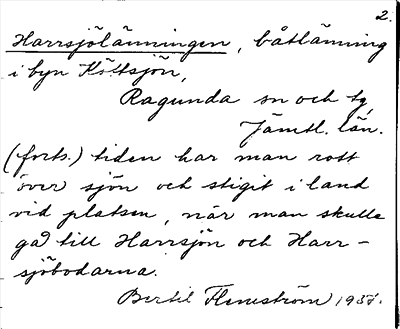 2.
Harrsjölänningen, båtlänning
i byn Köttsjön,
Ragunda sn och tg,
Jämtl. län.
(forts.) tiden har man rott
över sjön och stigit i land
vid platsen, när man skulle
gå till Harrsjön och Harr-
sjöbodarna.
Bertil Flemström